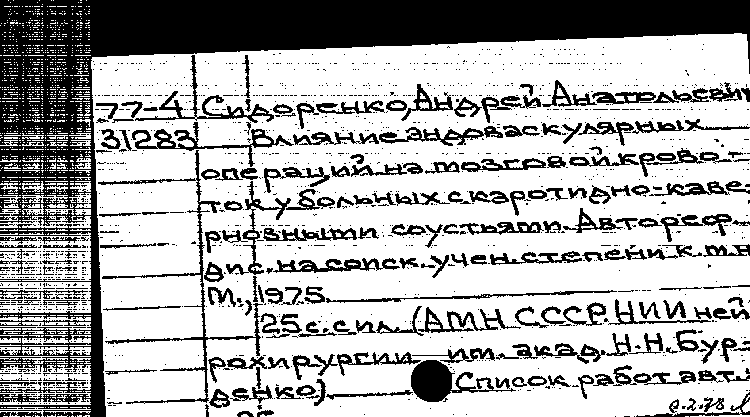 77-4 Сидоренко, Андрей Анатольевич
31283 Влияние эндоваскулярных
операций на мозговой крово-
ток у больных с каротидно-каве-
рнозными соустьями. Автореф.
дис. на соиск. учен. степени к.м.н
М., 1975.
25 с. с ил. (АМН СССР. НИИ ней
рохирургии им. акад. Н.Н. Бур-
денко). Список работ авт.: